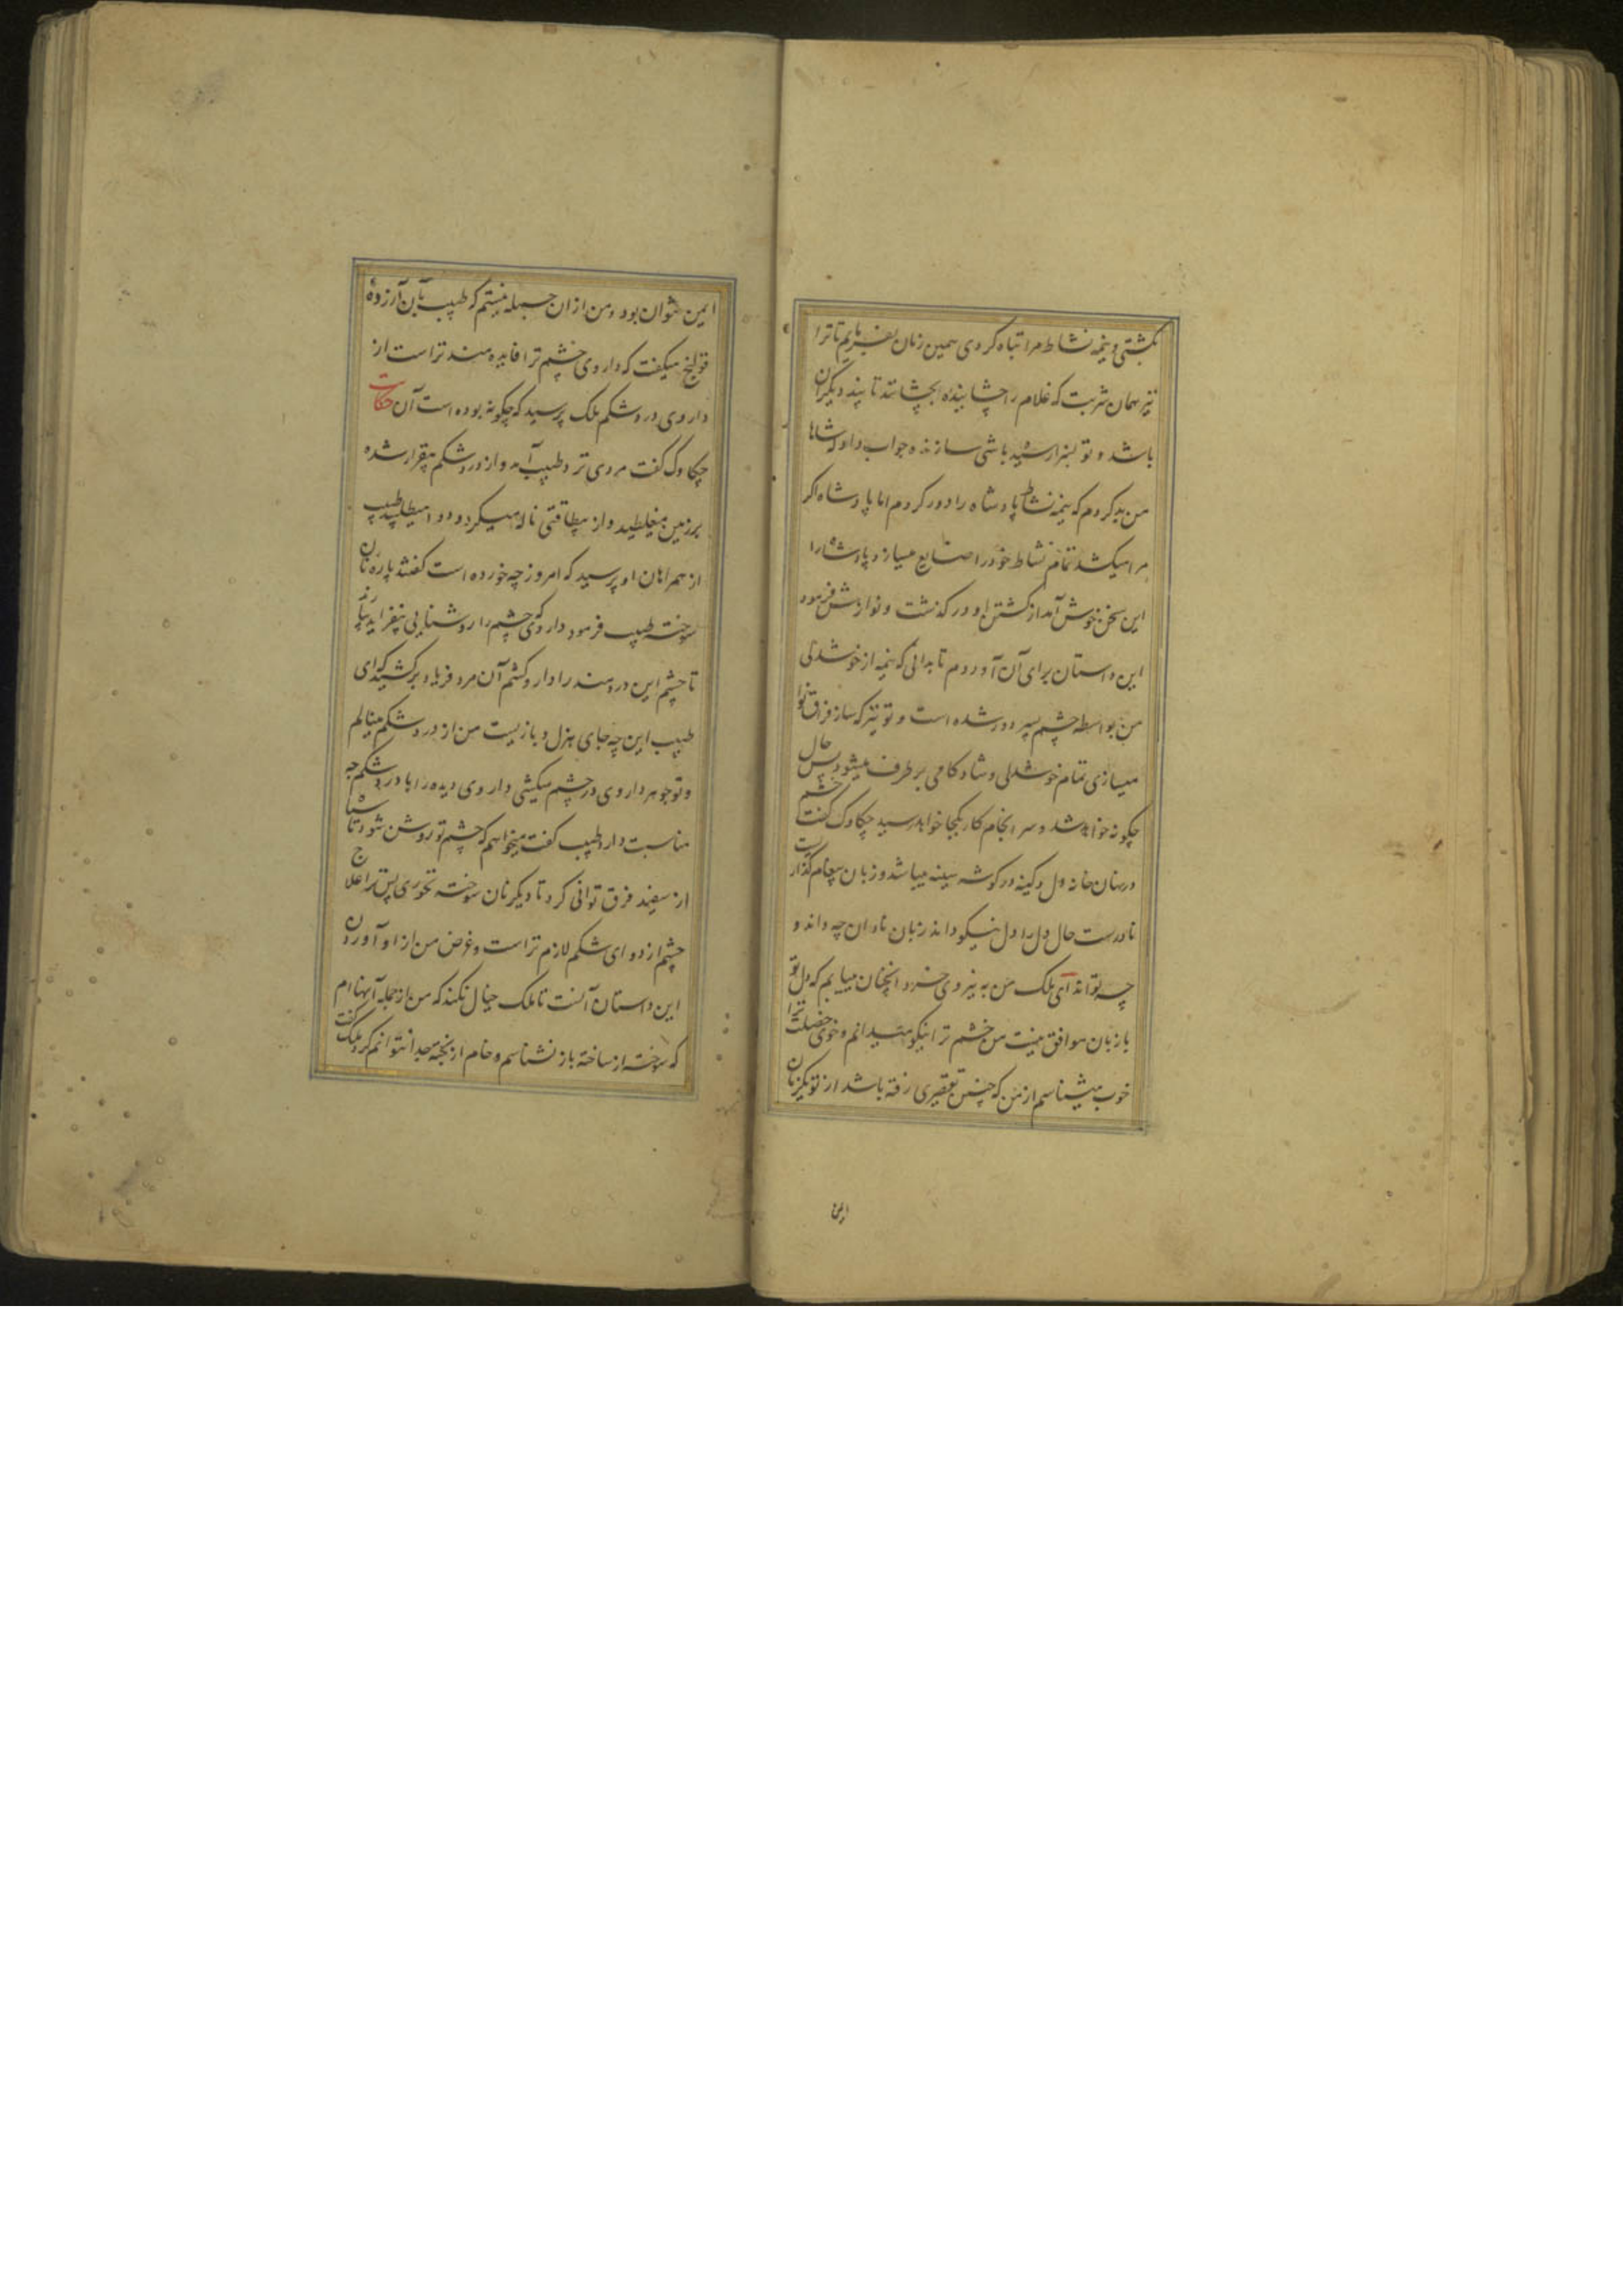 بکشتی و نیمه نشاط مرا تباه کردی همین زمان بفرمایم تا ترا
نیز همان شربت که غلام را چشانیده بچشانند تا پند دیگران
باشد و تو سزا رسیده باشی سازنده جواب داد که شاها
من بد کردم که نیمه نشاط پادشاه را دور کردم اما پادشاه اگر
مرا میکشد تمام نشاط خود را ضایع میسازد پادشاه را
این سخن خوش آمد از کشتن او در گذشت و نوازش فرمود
این داستان برای آن آوردم تا بدانی که نیمه از خوشدلی
من بواسطه چشم پسر دور شده است و تو نیز که ساز فراق نوا
میسازی تمام خوشدلی و شادکامی بر طرف میشود پس حال
چگونه خواهد شد و سر انجام کار بکجا خواهد رسید چکاوک گفت خشم
در نهان خانه دل و کینه در گوشه سینه میباشد و زبان پیغام گذاریست
نادرست حال دل را دل نیکو داند زبان نادان چه داند و
چه تواند ای ملک من به نیروی خرد انچنان مییابم که دل تو
با زبان موافق نیست من خشم ترا نیکو میدانم و خوی خصلت ترا
خوب میشناسم از من که چنین تقصیری رفته باشد از تو یکزمان
این
ایمن نتوان بود و من از ان جمله نیستم که طبیب بآن آرزوه
قولنج میگفت که داروی چشم ترا فایده مند تر است از
داروی درد شکم ملک پرسید که چگونه بوده است آن حکایت
چکاوک گفت مردی نزد طبیب آمد و از درد شکم بیقرار شده
بر زمین میغلطید و از بیطاقتی ناله میکرد و دوا میطلبید طبیب
از همراهان او پرسید که امروز چه خورده است گفتند پاره نان
سوخته طبیب فرمود داروی که چشم را روشنایی بیفزاید بیارند
تا چشم این دردمند را دارو کشم آن مرد فریاد بر کشید که ای
طبیب این چه جای هزل و بازیست من از درد شکم مینالم
و تو جوهر داروی در چشم میکشی داروی دیده را با درد شکم چه
مناسبت دارد طبیب گفت میخواهم که چشم تو روشن شود تا سیاه
از سفید فرق توانی کرد تا دیگر نان سوخته نخوری پس ترا علاج
چشم از دوای شکم لازم تر است و غرض من از آوردن
این داستان آنست تا ملک خیال نکند که من از جمله آنها ام
که سوخته از ساخته باز نشناسم و خام از پخته جدا نتوانم کرد ملک گفت